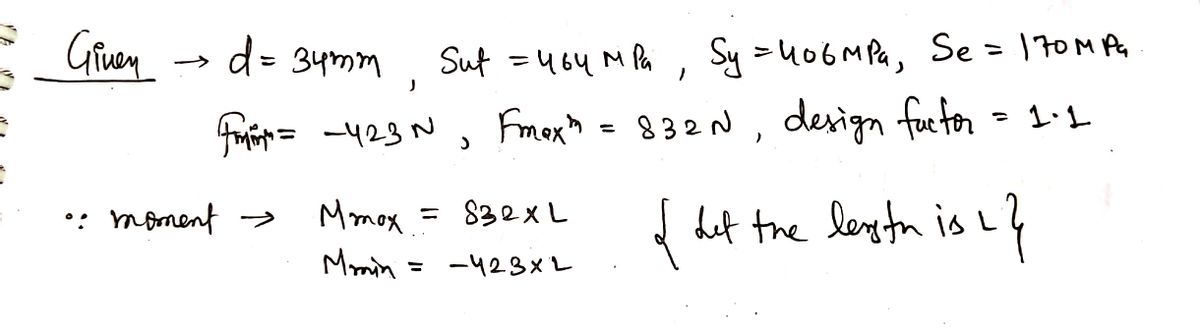 Given → d = 34mm , Sut = 464 MPa , Sy = 406MPa, Se = 170 MPa
Fmin = -423 N , Fmaxm = 832 N , design factor = 1.1
∵ moment → Mmax = 832×L { Let the length is L }
Mmin = -423×L